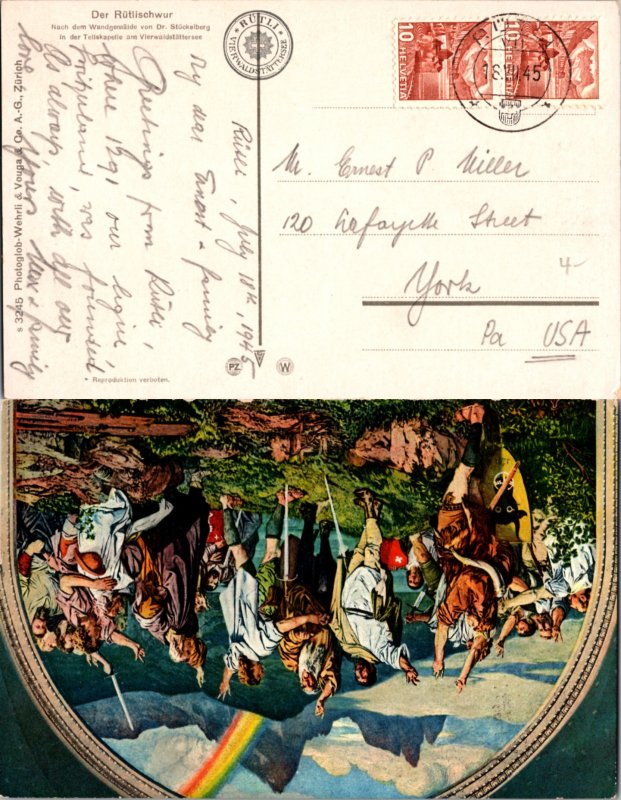 Der Rütlischwur
Nach dem Wandgemälde von Dr. Stückelberg
in der Tellskapelle am Vierwaldstättersee
RÜTLI
VIERWALDSTÄTTERSEE
10
HELVETIA
10
HELVETIA
18.VII.45
Rütli, July 18th, 1945
My dear Ernest & family
Greetings from Rütli,
where 1291 our
Switzerland was founded.
As always, with all our
love Yours Max & family
Mr. Ernest P. Miller
120 Lafayette Street
York
4-
Pa USA
s 3245 Photoglob-Wehrli & Vouga & Co. A.-G., Zürich
Reproduktion verboten.
PZ
W